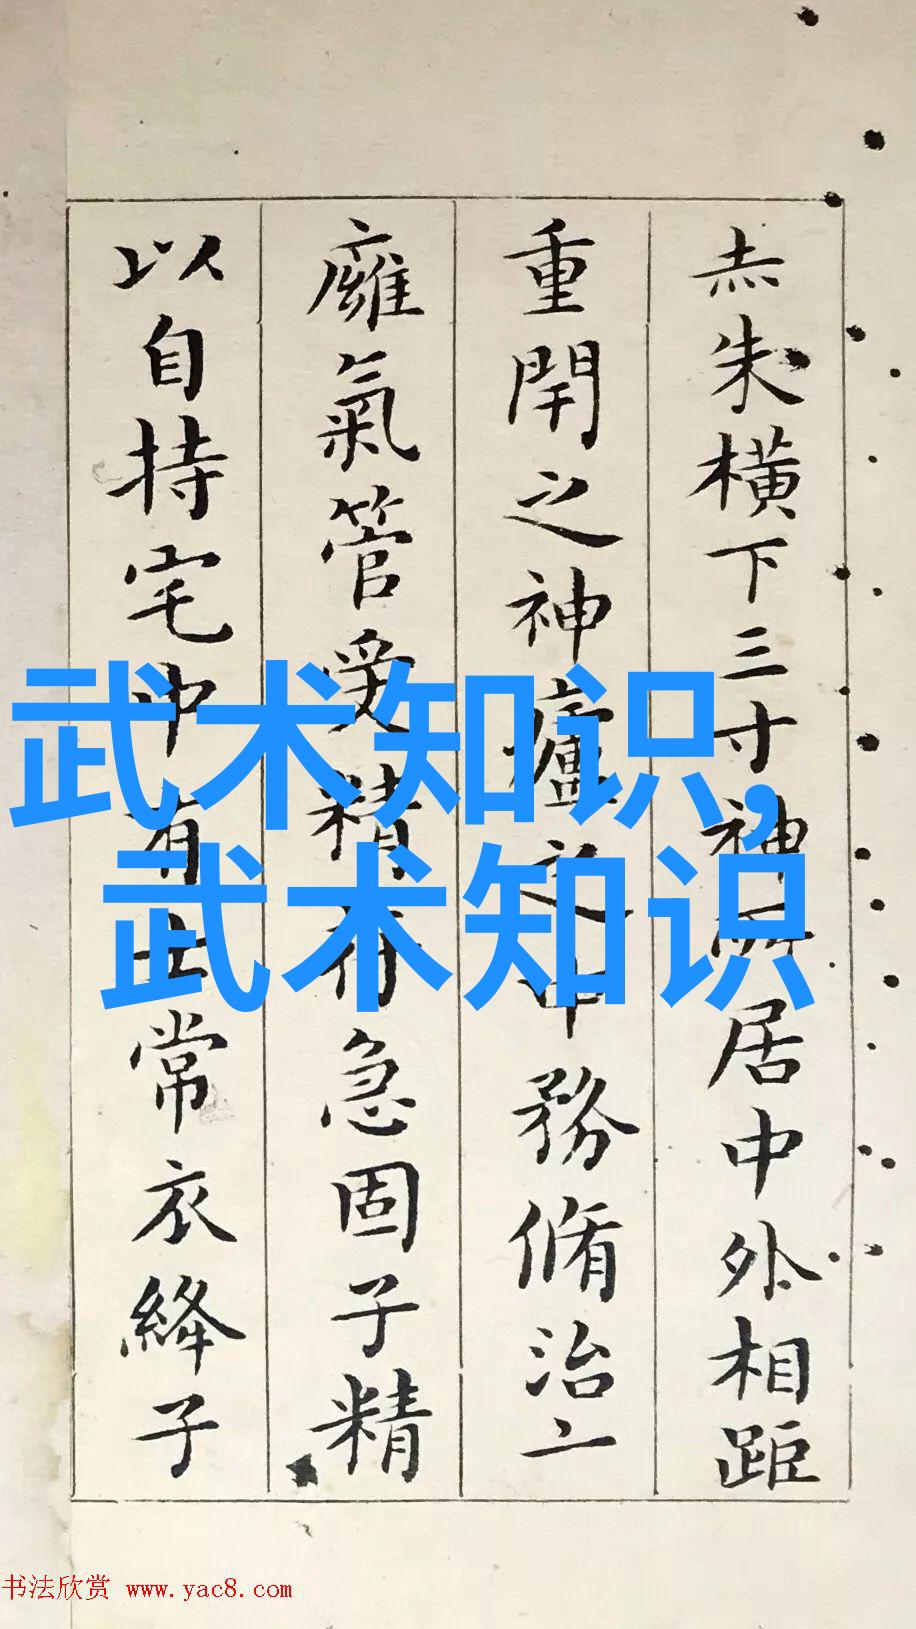 赤朱橫下三寸神所居中外相距
重閇之神廬之中務脩治亠
廱氣管受精符急固子精
以自持宅中有士常衣絳子
武术知识,
武术知识
书法欣赏 www.yac8.com